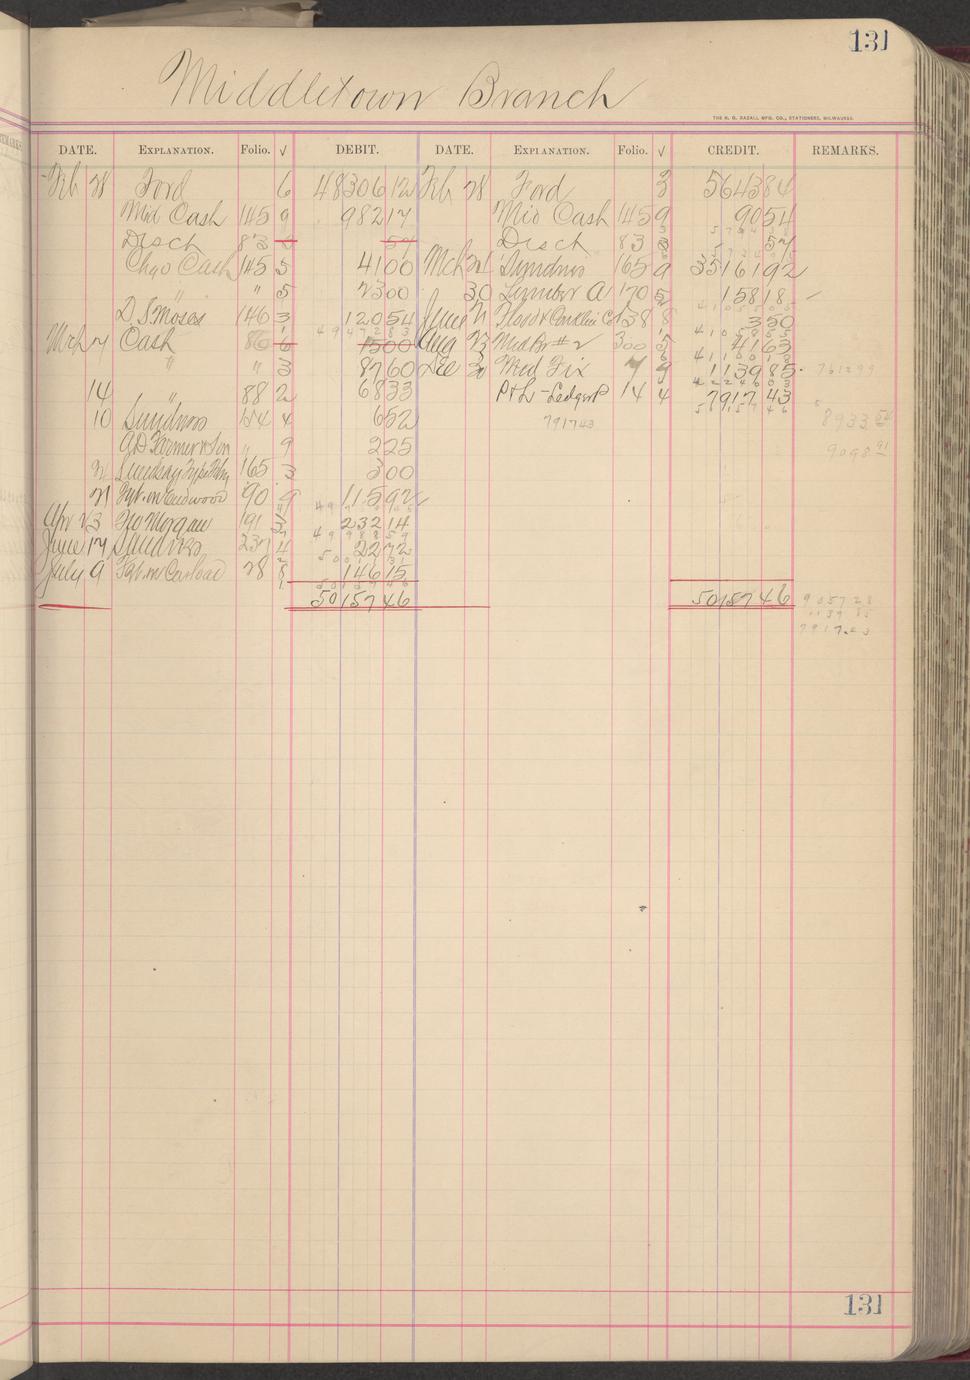 131
Middletown Branch
THE H. G. RAZALL MFG. CO., STATIONERS, MILWAUKEE.
DATE. EXPLANATION. Folio. √ DEBIT. DATE. EXPLANATION. Folio. √ CREDIT. REMARKS.
Feb 28 Ford 6 48306 12 Feb 28 Ford 3 5643 84
Mid Cash 145 9 982 17 Mid Cash 145 9 90 54
Disch 83 Disch 83 3 54
Chgo Cash 145 5 41 00 Mch 21 Sundries 165 9 35161 92
" " 5 23 00 30 Lumber A 170 5 158 18
D. S. Moses 146 3 120 54 June 138 8 3 50
Mch 7 Cash 86 6 15 00 Aug 23 Mid Br #2 300 5 41 63
" " 3 87 60 Dec 30 Mid Fix 7 9 1139 85 7612 99
14 " 88 2 68 33 P & L - Ledger P 14 4 7917 43
10 Sundries 4 6 52 7917 43 8933 54
G. D. & Son " 9 2 25 9098 91
Lindsay 165 3 3 00
21 Frt. on 90 9 115 92
Apr 23 Geo Morgan 191 3 232 14
June 17 Sundries 237 4 22 72
July 9 Frt. on Carload 28 8 146 15
50157 46 50157 46 9057 28
1139 85
7917.43
131